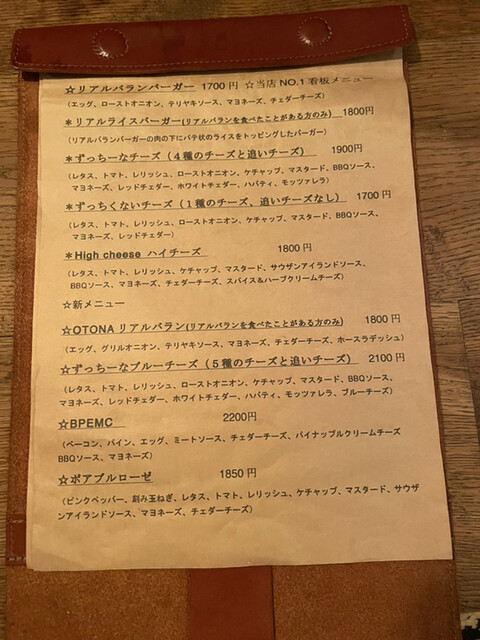 ☆リアルバランバーガー 1700円 ☆当店NO.1看板メニュー
（エッグ、ローストオニオン、テリヤキソース、マヨネーズ、チェダーチーズ）
＊リアルライスバーガー(リアルバランを食べたことがある方のみ) 1800円
（リアルバランバーガーの肉の下にパテ状のライスをトッピングしたバーガー）
＊ずっちーなチーズ（４種のチーズと追いチーズ） 1900円
（レタス、トマト、レリッシュ、ローストオニオン、ケチャップ、マスタード、BBQソース、
マヨネーズ、レッドチェダー、ホワイトチェダー、ハバティ、モッツァレラ）
＊ずっちくないチーズ（１種のチーズ、追いチーズなし） 1700円
（レタス、トマト、レリッシュ、ローストオニオン、ケチャップ、マスタード、BBQソース、
マヨネーズ、レッドチェダー）
＊High cheese ハイチーズ 1800円
（レタス、トマト、レリッシュ、ケチャップ、マスタード、サウザンアイランドソース、
BBQソース、マヨネーズ、チェダーチーズ、スパイス&ハーブクリームチーズ）
☆新メニュー
☆OTONAリアルバラン(リアルバランを食べたことがある方のみ) 1800円
（エッグ、グリルオニオン、テリヤキソース、マヨネーズ、チェダーチーズ、ホースラデッシュ）
☆ずっちーなブルーチーズ（５種のチーズと追いチーズ） 2100円
（レタス、トマト、レリッシュ、ローストオニオン、ケチャップ、マスタード、BBQソース、
マヨネーズ、レッドチェダー、ホワイトチェダー、ハバティ、モッツァレラ、ブルーチーズ）
☆BPEMC 2200円
（ベーコン、パイン、エッグ、ミートソース、チェダーチーズ、パイナップルクリームチーズ
BBQソース、マヨネーズ）
☆ポアブルローゼ 1850円
（ピンクペッパー、刻み玉ねぎ、レタス、トマト、レリッシュ、ケチャップ、マスタード、サウザ
ンアイランドソース、マヨネーズ、チェダーチーズ）